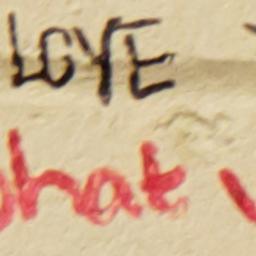 LOVE
what